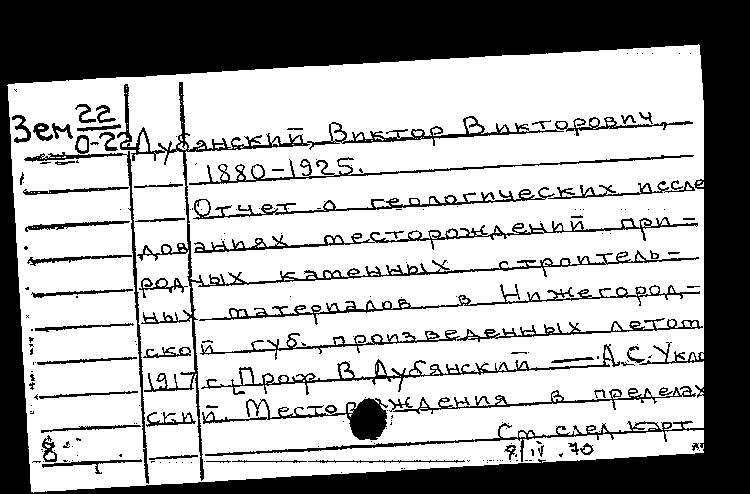 Зем 22
0-22
Дубянский, Виктор Викторович,
1880-1925.
Отчет о геологических иссле
дованиях месторождений при=
родных каменных строитель=
ных материалов в Нижегород,=
ской губ., произведенных летом
1917 г. [Проф. В. Дубянский. — А.С. Укло
ский. Месторождения в пределах
См. след. карт.
9/IV.70
8